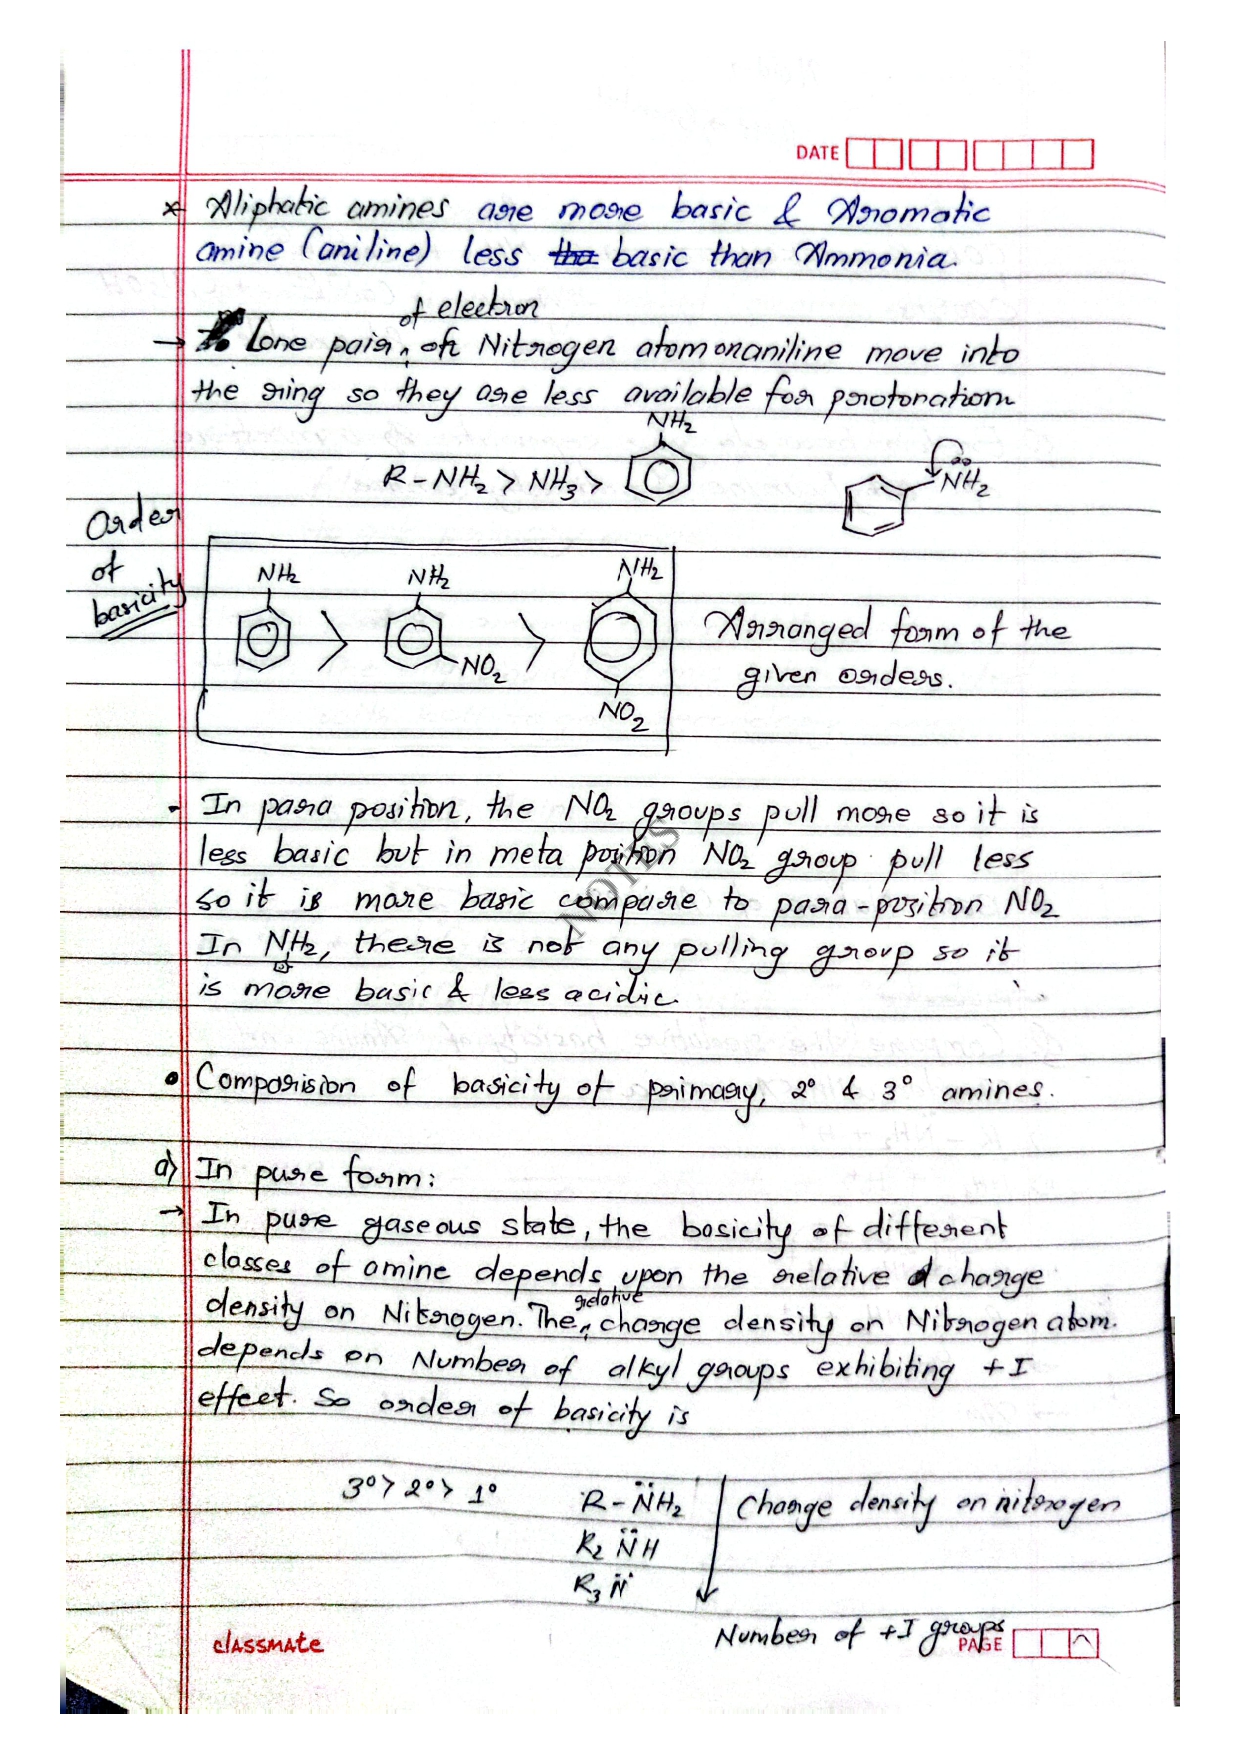 DATE
* Aliphatic amines are more basic & Aromatic
amine (aniline) less tha basic than Ammonia.
of electron
→ Lone pair, of Nitrogen atom onaniline move into
the ring so they are less available for protonation
NH2
R-NH2 > NH3 >
NH2
Order
of
basicity
NH2 NH2 NH2
> >
NO2
NO2
Arranged form of the
given orders.
- In para position, the NO2 groups pull more so it is
less basic but in meta position NO2 group pull less
so it is more basic compare to para-position NO2
In NH2, there is not any pulling group so it
is more basic & less acidic.
NOTES
• Comparision of basicity of primary, 2° & 3° amines.
a) In pure form:
→ In pure gaseous state, the basicity of different
classes of amine depends upon the relative charge
relative
density on Nitrogen. The, charge density on Nitrogen atom.
depends on Number of alkyl groups exhibiting +I
effect. So order of basicity is
3° > 2° > 1° R-N̈H2 Charge density on nitrogen
R2 N̈H
R3 N̈
Number of +I groups
classmate
PAGE